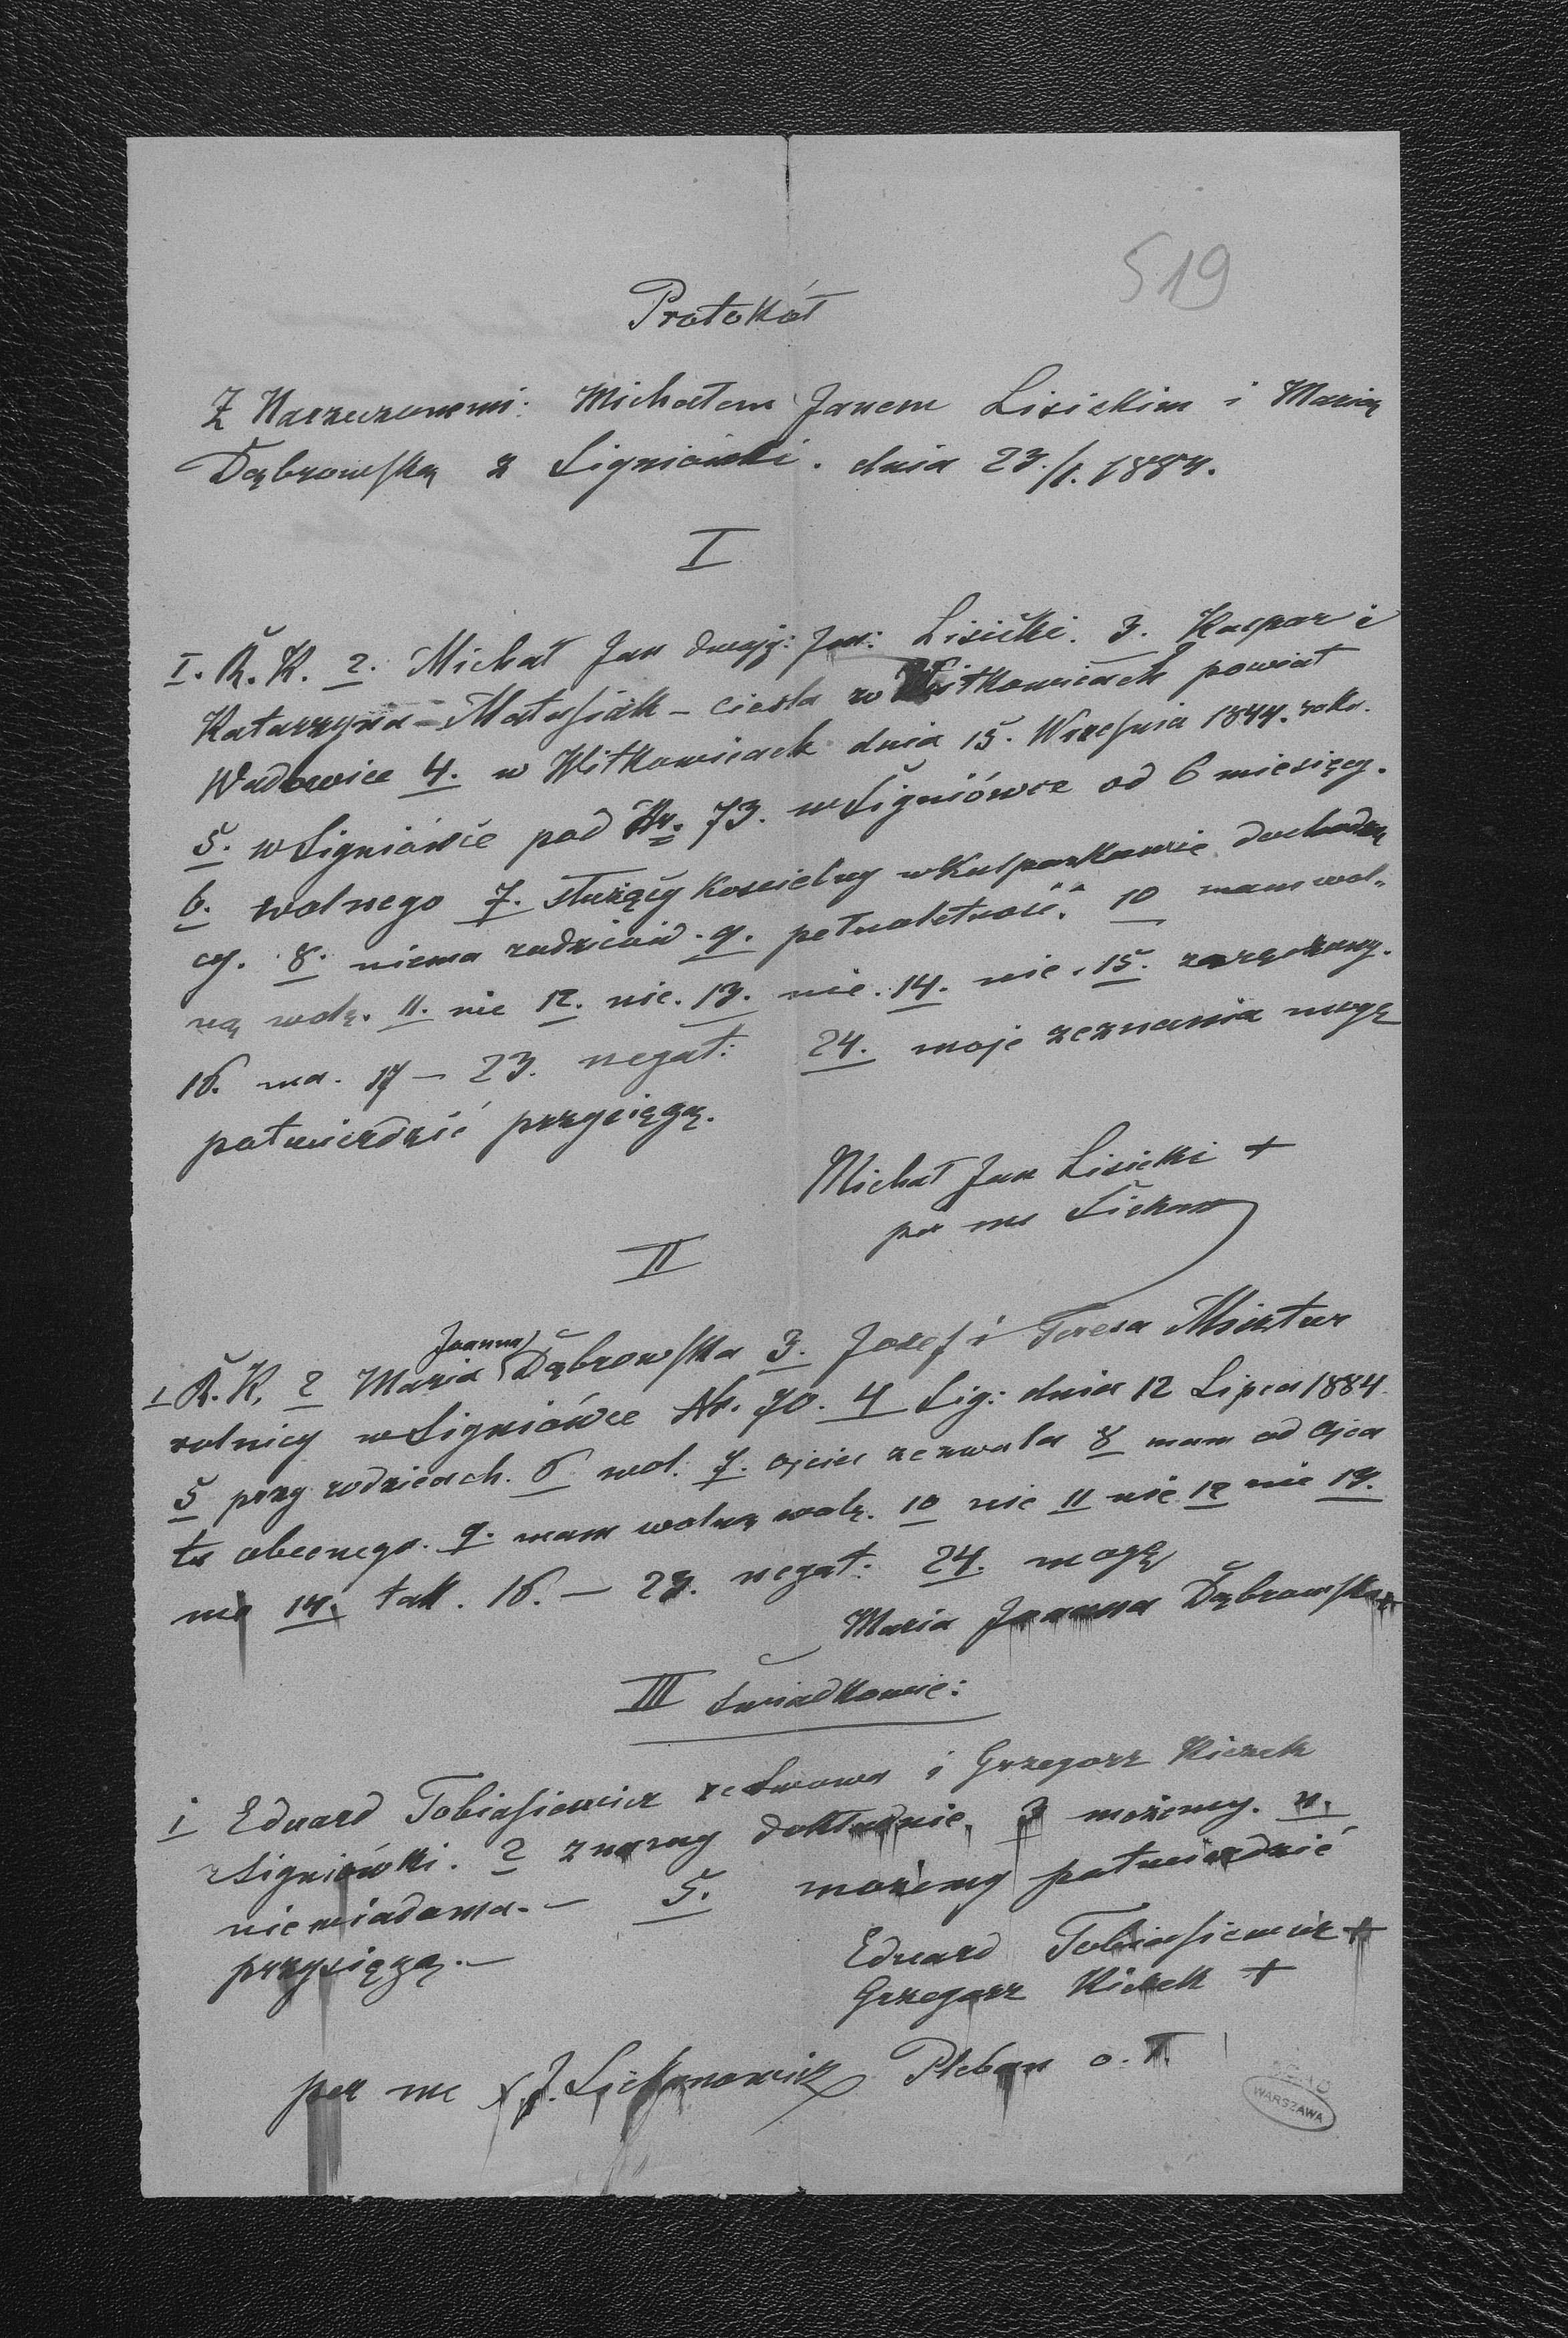 519
Protokół
Z Narzeczonemi: Michałem Janem Lisickim i Marią
Dąbrowską z Signiówki. dnia 23./1. 1884.
I
I. R. K. 2. Michał Jan dwojg: Jan: Lisicki. 3. Kaspar i
Katarzyna - Matusiak - cieśla w Witkowicach powiat
Wadowice 4. w Witkowicach dnia 15. Września 1844. roku.
5. w Signiówce pod Nr. 73. w Signiówce od 6 miesięcy.
6. wolnego 7. służący kościelny w Kulparkowie dochodzą
cy. 8. niema rodziców. 9. pełnoletność. 10 mam wol„
ną wolę. 11. nie 12. nie. 13. nie. 14. nie. 15. zaręczony.
16. ma. 17 — 23. negat: 24. moje zeznania mogę
potwierdzić przysięgą.
Michał Jan Lisicki +
per me
II
1 R. K. 2 Maria Joanna Dąbrowska 3. Josef i Teresa Misztur
rolnicy w Signiówce Nr. 70. 4 Sig: dnia 12 Lipca 1884
5 przy rodzicach. 6 wol. 7. ojciec zezwala 8 mam od ojca
tu obecnego. 9. mam wolną wolę. 10 nie 11 nie 12 nie 13.
nie 14. tak. 16. — 23. negat: 24. mogę
Maria Joanna Dąbrowska +
III Świadkowie:
1 Eduard Tobiasiewicz ze Lwowa i Grzegorz Kiczek
z Signiówki. 2 znamy dokładnie. 3 możemy. 4.
niewiadoma. — 5. możemy potwierdzić
przysięgą. —
Eduard Tobiasiewicz +
Grzegorz Kiczek +
per me X. J. Pleban o. ł.
WARSZAWA